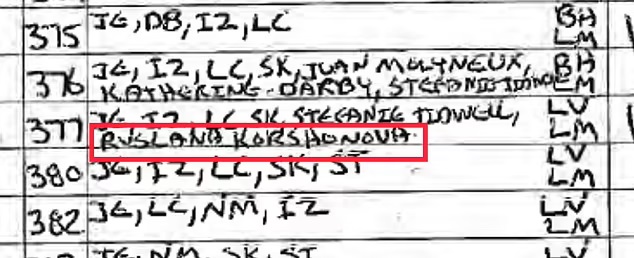 375 JE, DB, IZ, LC BH
LM
376 JE, IZ, LC, SK, JUAN MOLYNEUX, BH
KATHERINE DARBY, STEFANIE LM
377 JE, IZ, LC, SK, STEFANIE TIDWELL, LV
RUSLANA KORSHONOVA LM
380 JE, IZ, LC, SK, ST LV
LM
382 JE, LC, NM, IZ LV
LM
JE, NM, SK, ST LV